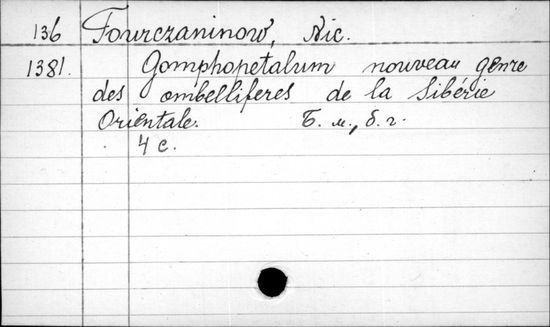 136 Tourczaninow, Nic.
1381. Gomphopetalum nouveau genre
des ombelliferes de la Sibérie
Orientale. Б. м., б. г.
4 с.